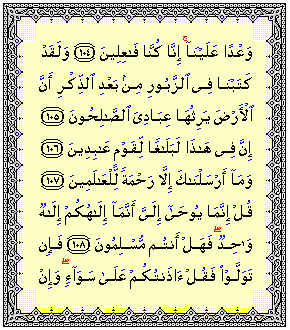 وَعْدًا عَلَيْنَآ ۚ إِنَّا كُنَّا فَٰعِلِينَ ١٠٤ وَلَقَدْ
كَتَبْنَا فِى ٱلزَّبُورِ مِنۢ بَعْدِ ٱلذِّكْرِ أَنَّ
ٱلْأَرْضَ يَرِثُهَا عِبَادِىَ ٱلصَّٰلِحُونَ ١٠٥
إِنَّ فِى هَٰذَا لَبَلَٰغًا لِّقَوْمٍ عَٰبِدِينَ ١٠٦
وَمَآ أَرْسَلْنَٰكَ إِلَّا رَحْمَةً لِّلْعَٰلَمِينَ ١٠٧
قُلْ إِنَّمَا يُوحَىٰٓ إِلَىَّ أَنَّمَآ إِلَٰهُكُمْ إِلَٰهٌ
وَٰحِدٌ ۖ فَهَلْ أَنتُم مُّسْلِمُونَ ١٠٨ فَإِن
تَوَلَّوْا۟ فَقُلْ ءَاذَنتُكُمْ عَلَىٰ سَوَآءٍ ۖ وَإِنْ